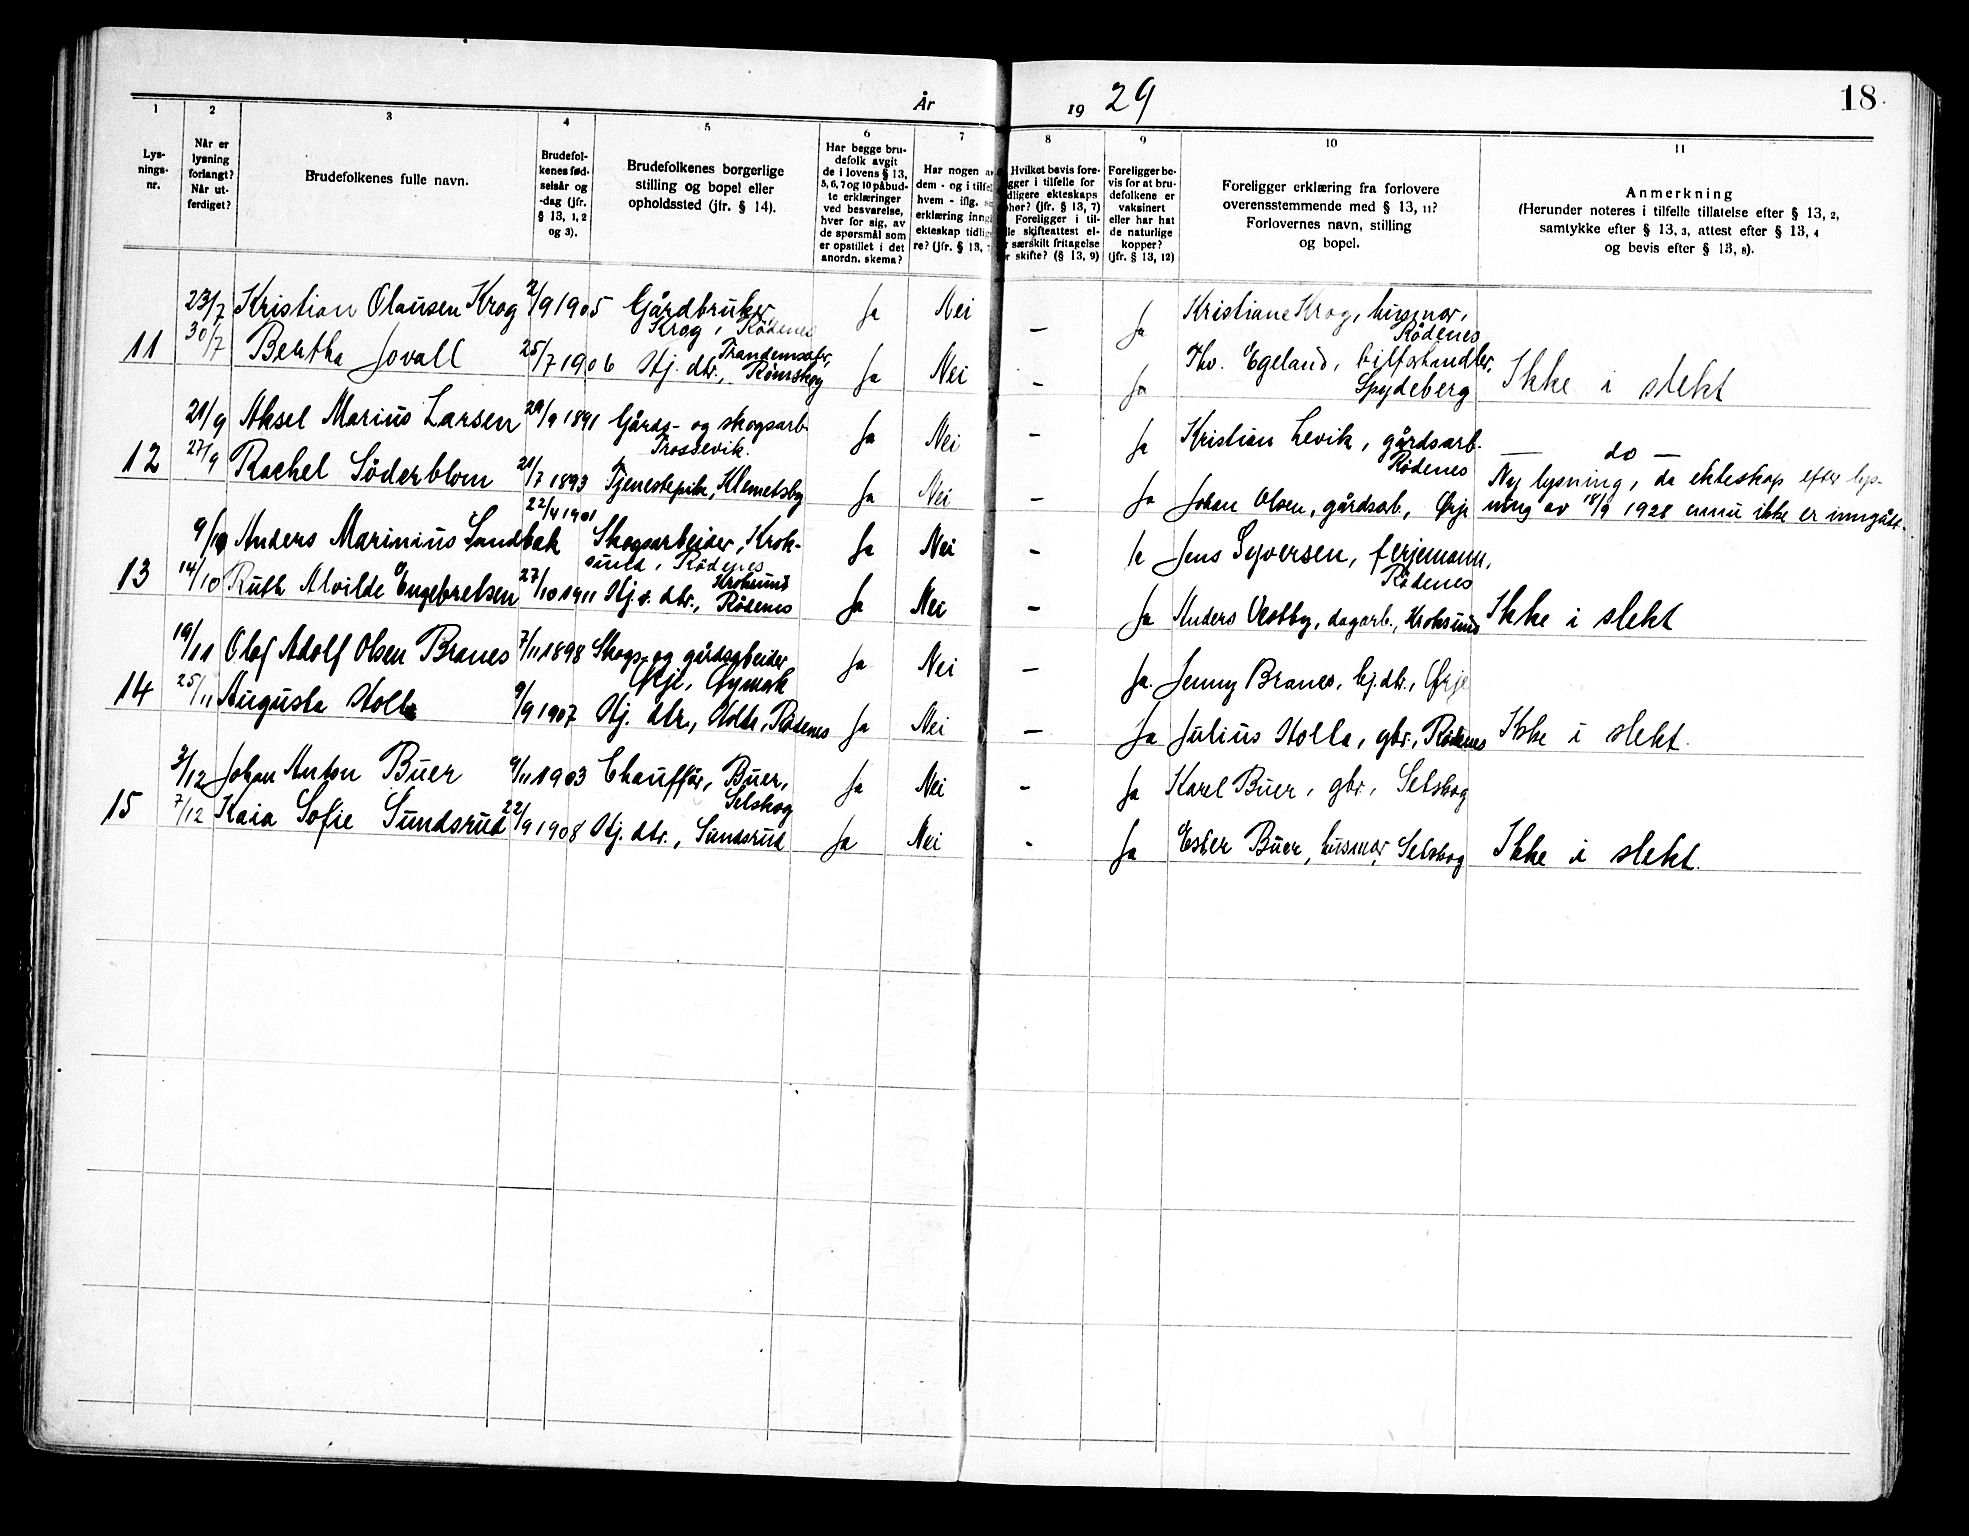 År 1929
18
1 2 3 4 5 6 7 8 9 10 11
Lys-
nings-
nr.
Når er
lysning
forlangt?
Når ut-
ferdiget?
Brudefolkenes fulle navn.
Brudefol-
kenes fød-
selsår og
-dag (jfr.
§ 13, 1, 2
og 3).
Brudefolkenes borgerlige
stilling og bopel eller
opholdssted (jfr. § 14).
Har begge bru-
defolk avgit
de i lovens § 13,
5, 6, 7 og 10 påbud-
te erklæringer
ved besvarelse,
hver for sig, av
de spørsmål som
er opstillet i det
anordn. skema?
Har nogen a
dem - og i tilfel
hvem - iflg. si
erklæring inng
ekteskap tidlig
re? (jfr. § 13,
Hvilket bevis fore-
gger i tilfelle for
dligere ekteskaps
phør? (jfr. § 13, 7)
Foreligger i til-
lle skifteattest el-
r særskilt fritagelse
r skifte? (§ 13, 9)
Foreligger be-
vis for at bru-
defolkene er
vaksinert
eller har hat
de naturlige
kopper?
(jfr. § 13, 12)
Foreligger erklæring fra forlovere
overensstemmende med § 13, 11?
Forlovernes navn, stilling
og bopel.
Anmerkning
(Herunder noteres i tilfelle tillatelse efter § 13, 2,
samtykke efter § 13, 3, attest efter § 13, 4
og bevis efter § 13, 8).
23/7 Kristian Olausen Krog 2/9 1905 Gårdbruker Ja Nei — Ja Kristiane Krog, husmor,
Krog, Rödenes Rödenes
11 30/7 Bertha Jovall 25/7 1906 Hj. dtr., Trandemsæter, Rømskog Ja Nei — Ja Thv. Egeland, bilforhandler,
Spydeberg Ikke i slekt
21/9 Aksel Marius Larsen 29/9 1891 Gårds- og skogsarb. Ja Nei — Ja Kristian Levik, gårdsarb.
Trossevik. Rödenes — do —
12 27/9 Rachel Söderblom 21/7 1893 Tjenestepike, Klemetsby Ja Nei — Ja Johan Olsen, gårdsarb., Ørje
Ny lysning, da ekteskap efter lys-
ning av 18/9 1928 ennu ikke er inngått.
9/10 Anders Marinius Sandbæk 22/4 1901 Skogsarbeider, Krok- Ja Nei — Ja Jens Syversen, ferjemann,
sund, Rödenes Rödenes
13 14/10 Ruth Alvilde Engebretsen 27/10 1911 Hj. v. dtr., Kroksund Rödenes Ja Nei — Ja Anders Vestby, dagarb., Kroksund Ikke i slekt
19/11 Olaf Adolf Olsen Branes 7/11 1898 Skogs- og gårdsarbeider Ja Nei — Ja. Jenny Branes, hj. dtr., Ørje
Ørje, Øymark
14 25/11 Augusta Holla 9/9 1907 Hj. dtr., Holla, Rödenes Ja Nei — Ja Julius Holla, gbr., Rödenes Ikke i slekt.
3/12 Johan Anton Buer 9/11 1903 Chauffør, Buer, Ja Nei - Ja Karel Buer, gbr., Setskog
Setskog
15 7/12 Kaia Sofie Sundsrud 22/9 1908 Hj. dtr., Sundsrud Ja Nei - Ja Ester Buer, husmor, Setskog Ikke i slekt.